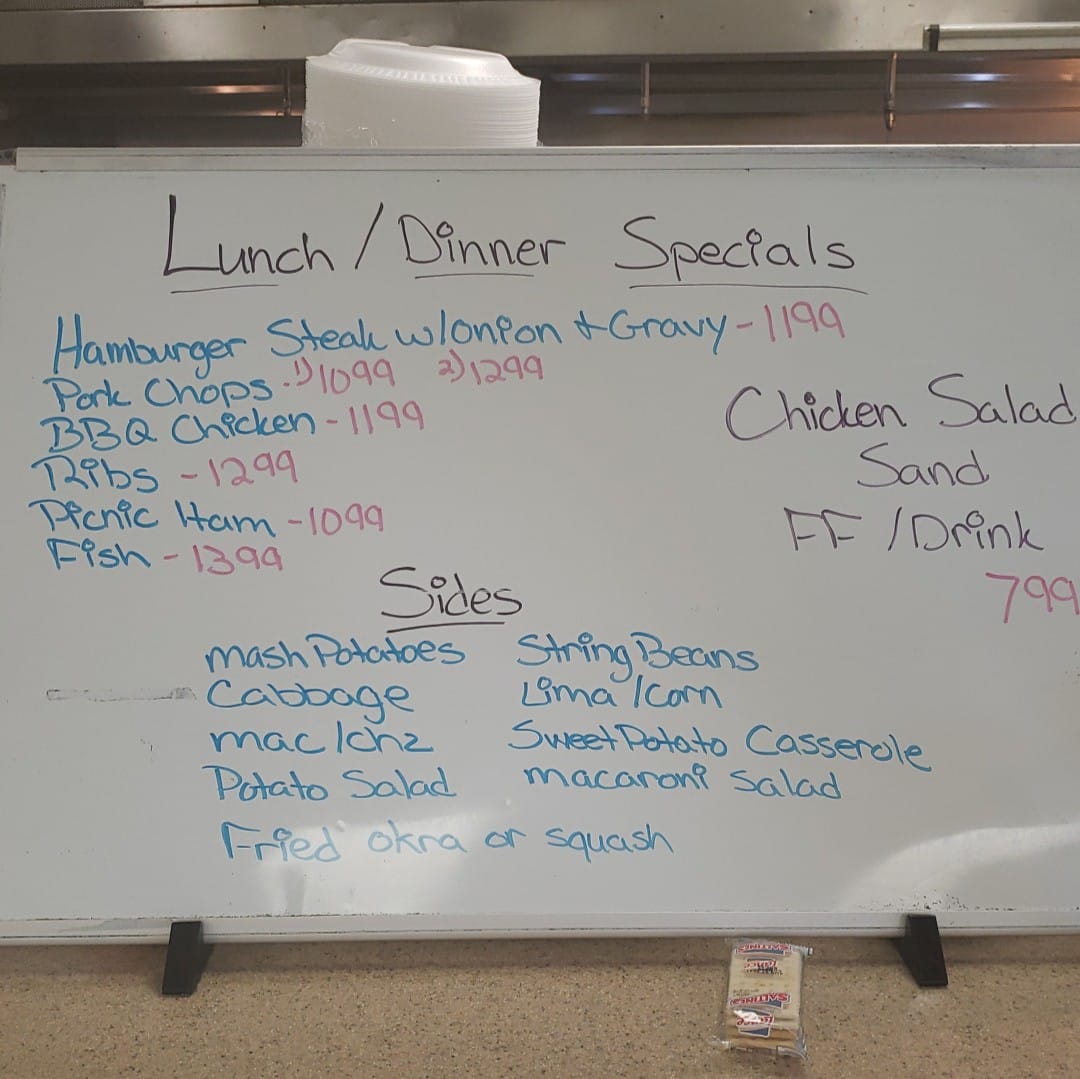 Lunch / Dinner Specials
Hamburger Steak w/onion + Gravy - 1199
Pork Chops - 1) 1099 2) 1299
BBQ Chicken - 1199
Ribs - 1299
Picnic Ham - 1099
Fish - 1399
Chicken Salad
Sand
FF / Drink
799
Sides
mash Potatoes String Beans
Cabbage Lima / Corn
mac / chz Sweet Potato Casserole
Potato Salad macaroni salad
Fried okra or squash
SALTINES
Lance
SALTINES
Lance